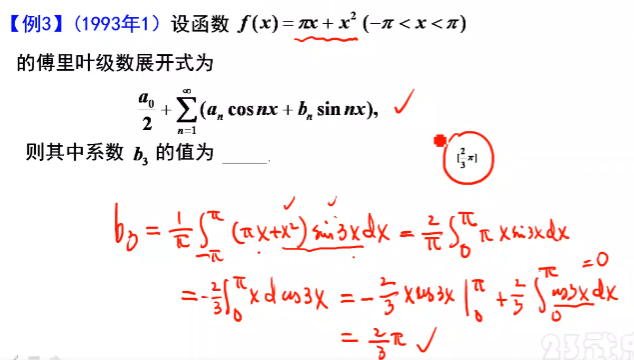 【例3】(1993年1) 设函数 f(x) = πx + x² (−π < x < π)
的傅里叶级数展开式为
a₀/2 + ∑_{n=1}^{∞} (aₙ cos nx + bₙ sin nx),
则其中系数 b₃ 的值为 _____.
[2/3 π]
b₃ = 1/π ∫_{-π}^{π} (πx + x²) sin3x dx = 2/π ∫_0^π πx sin3x dx
= −2/3 ∫_0^π x d cos3x = −2/3 x cos3x |_0^π + 2/3 ∫_0^π cos3x dx = 0
= 2/3 π